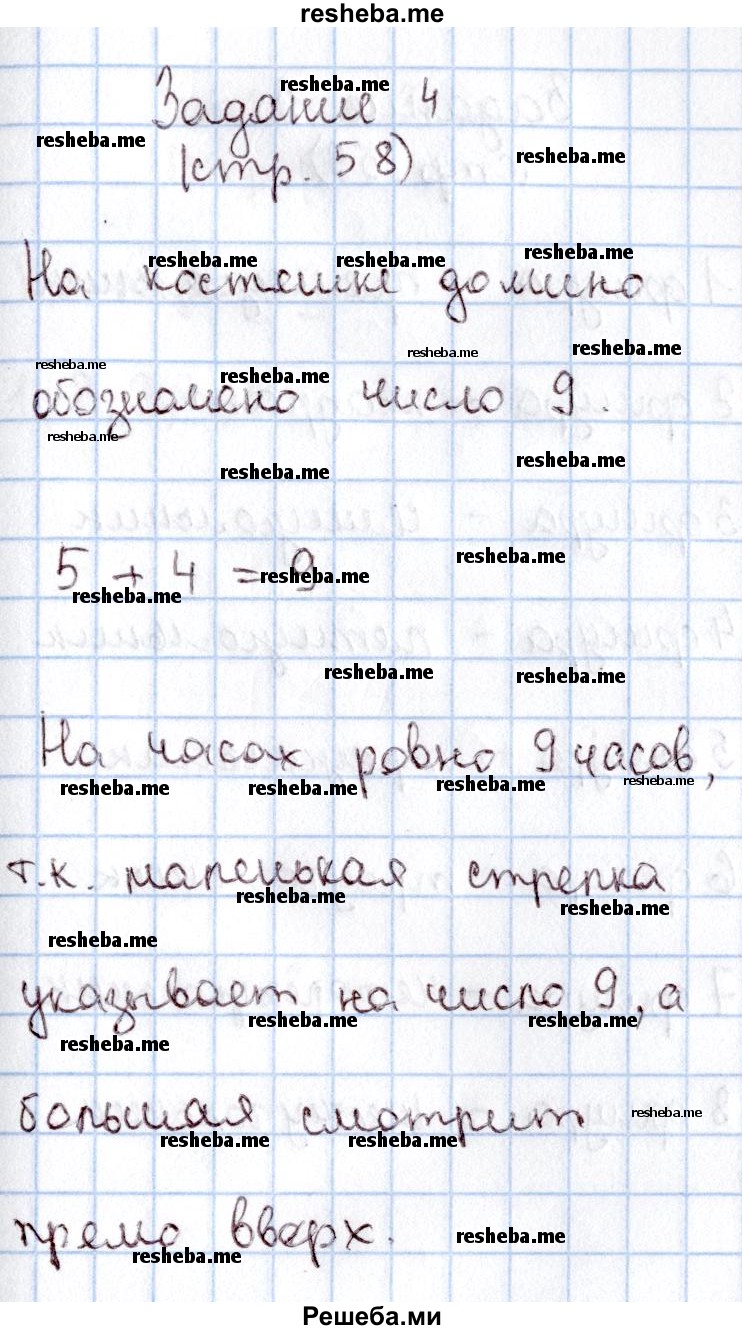 resheba.me
resheba.me
Задание 4
resheba.me
resheba.me
(стр. 58)
resheba.me
resheba.me
resheba.me
На костяшке домино
resheba.me
resheba.me
resheba.me
resheba.me
обозначено число 9.
resheba.me
resheba.me
resheba.me
resheba.me
5 + 4 = 9
resheba.me
resheba.me
resheba.me
resheba.me
На часах ровно 9 часов,
resheba.me
resheba.me
resheba.me
resheba.me
т.к. маленькая стрелка
resheba.me
resheba.me
resheba.me
указывает на число 9, а
resheba.me
resheba.me
resheba.me
большая смотрит
resheba.me
resheba.me
resheba.me
прямо вверх.
resheba.me
resheba.me
Решеба.ми